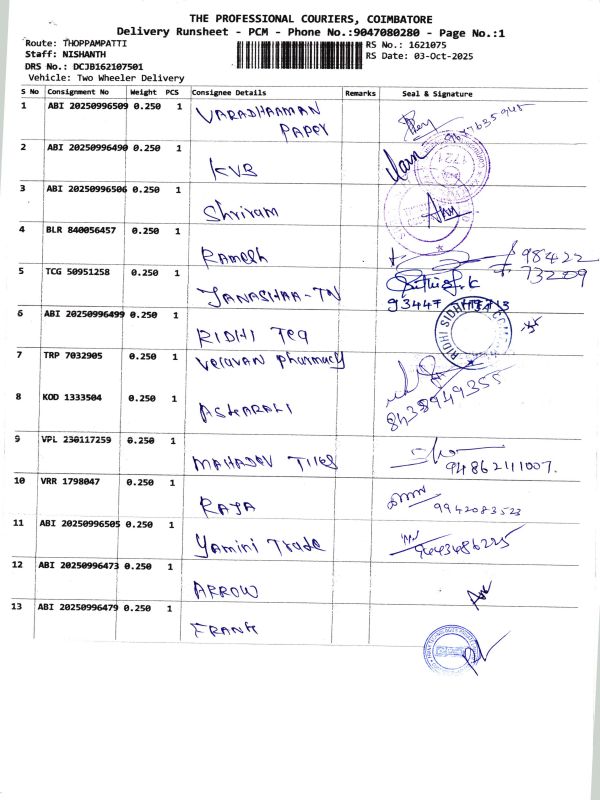 THE PROFESSIONAL COURIERS, COIMBATORE
Delivery Runsheet - PCM - Phone No.:9047080280 - Page No.:1
Route: THOPPAMPATTI
RS No.: 1621075
Staff: NISHANTH
RS Date: 03-Oct-2025
DRS No.: DCJB162107501
Vehicle: Two Wheeler Delivery
S No Consignment No Weight PCS Consignee Details Remarks Seal & Signature
1 ABI 20250996509 0.250 1 VARADHARMAN PAPEY
2 ABI 20250996490 0.250 1 KVB
3 ABI 20250996506 0.250 1 Shriram
4 BLR 840056457 0.250 1 Ramesh 98422
73209
5 TCG 50951258 0.250 1 JANASHAA-TN
6 ABI 20250996499 0.250 1 RIDHI Tea
7 TRP 7032905 0.250 1 Velavan pharmacy
8 KOD 1333504 0.250 1 ASHARALI 8438949355
9 VPL 230117259 0.250 1 MAHADEV TILES 9486211007.
10 VRR 1798047 0.250 1 RAJA 9942083523
11 ABI 20250996505 0.250 1 Yamini Trade 9443486225
12 ABI 20250996473 0.250 1 ARROW
13 ABI 20250996479 0.250 1 FRANK